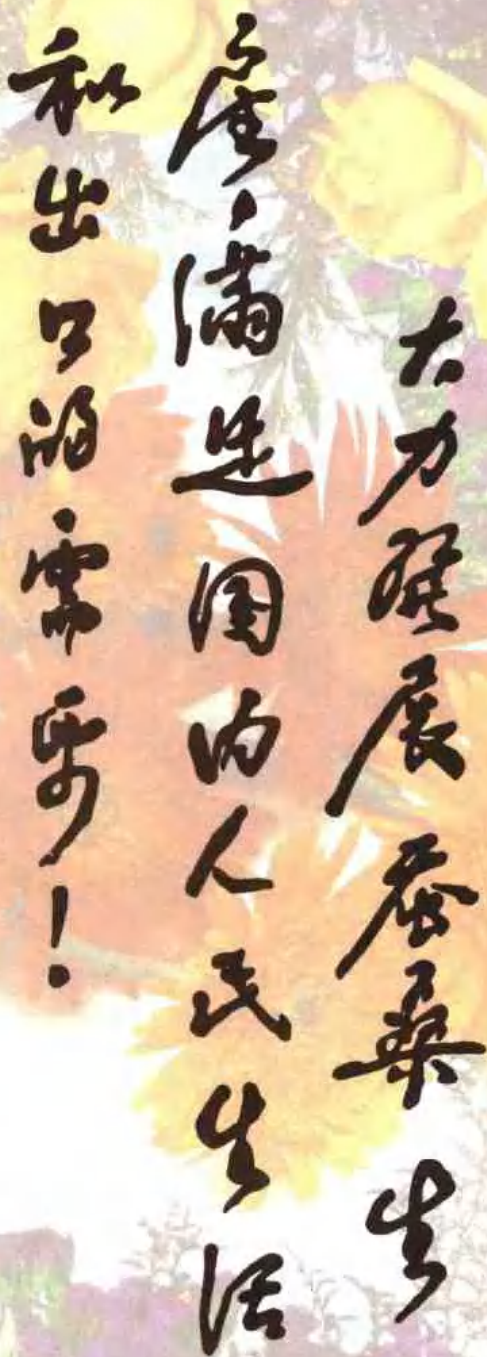 大力發展蚕桑生
產、滿足国内人民生活
和出口的需要!